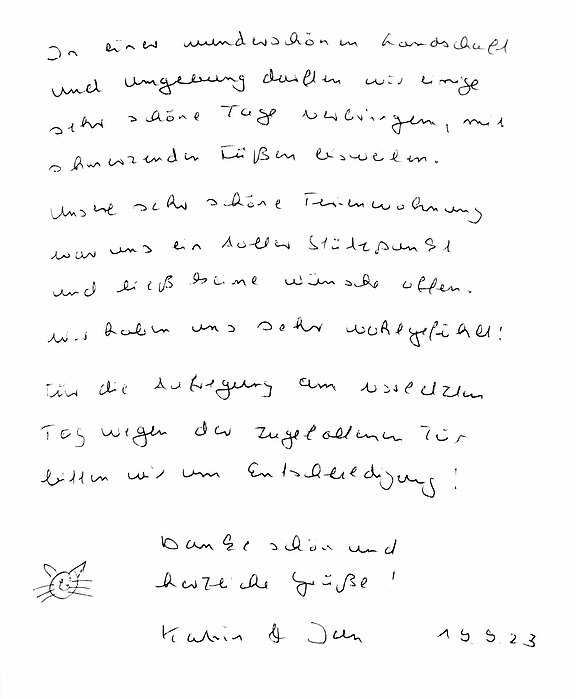 In einer wunderschönen Landschaft
und Umgebung durften wir einige
sehr schöne Tage verbringen, mit
schmerzenden Füßen bisweilen.
Unsere sehr schöne Ferienwohnung
war uns ein toller Stützpunkt
und ließ keine Wünsche offen.
Wir haben uns sehr wohlgefühlt!
Für die Aufregung am vorletzten
Tag wegen der zugefallenen Tür
bitten wir um Entschuldigung!
Danke schön und
herzliche Grüße!
Katrin & Jan 19.9.23